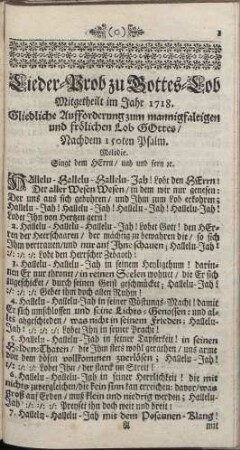 1
Lieder-Prob zu Gottes-Lob
Mitgetheilt im Jahr 1718.
Gliedliche Aufforderung zum mannigfaltigen
und frölichen Lob GOttes/
Nachdem 150ten Psalm.
Melodie.
Singt dem HErrn/ nah und fern ꝛc.
HAllelu-Hallelu-Hallelu-Jah! Lobt den HErrn:
Der aller Wesen Wesen/ in dem wir nur genesen:
Der uns aus sich gebohren/ und Ihm zum Lob erkohren;
Hallelu-Jah! Hallelu-Jah! Hallelu-Jah! Hallelu-Jah!
Lobet Ihn von Hertzen gern!
2. Hallelu-Hallelu-Hallelu-Jah! Lobet Gott! den HEr-
ren der Heerschaaren/ der mächtig zu bewahren die/ so sich
Ihm vertrauen/und nur auf Ihne schauen; Hallelu-Jah!
Lobt den Herrscher Zebaoth!
3. Hallelu-Hallelu-Jah in seinem Heiligthum! darin-
nen Er nur throne/ in reinen Seelen wohnt/ die Er sich
ausgeschieht/ durch seinen Geist geschmückt; Hallelu-Jah!
Gebet ihm doch allen Ruhm
4. Hallelu-Hallelu-Jah in seiner Vöstungs-Macht! damit
Er sich umschlossen und seine Liechts-Genossen: und al-
les ausgeschieden/ was nicht in seinem Frieden; Hallelu-
Jah! Lobet Ihn in seiner Pracht!
5. Hallelu-Hallelu-Jah in seiner Tapferkeit! in seinen
Helden-Thaten/ die Ihm stets wohl gerathen/ uns arme
von dem bösen vollkommen zuerlösen; Hallelu-Jah!
Lobet Ihn/ der starck im Streit!
6. Hallelu-Hallelu-Jah in seiner Herrlichkeit! die mit
nichtes zuvergleichen/die kein sinn kan erreichen: davor/was
Groß auf Erden/ muß klein und niedrig werden; Hallelu-
Jah! Preyset ihn doch weit und breit:
7. Hallelu-Hallelu-Jah mit dem Posaunen-Klang!
A
mit